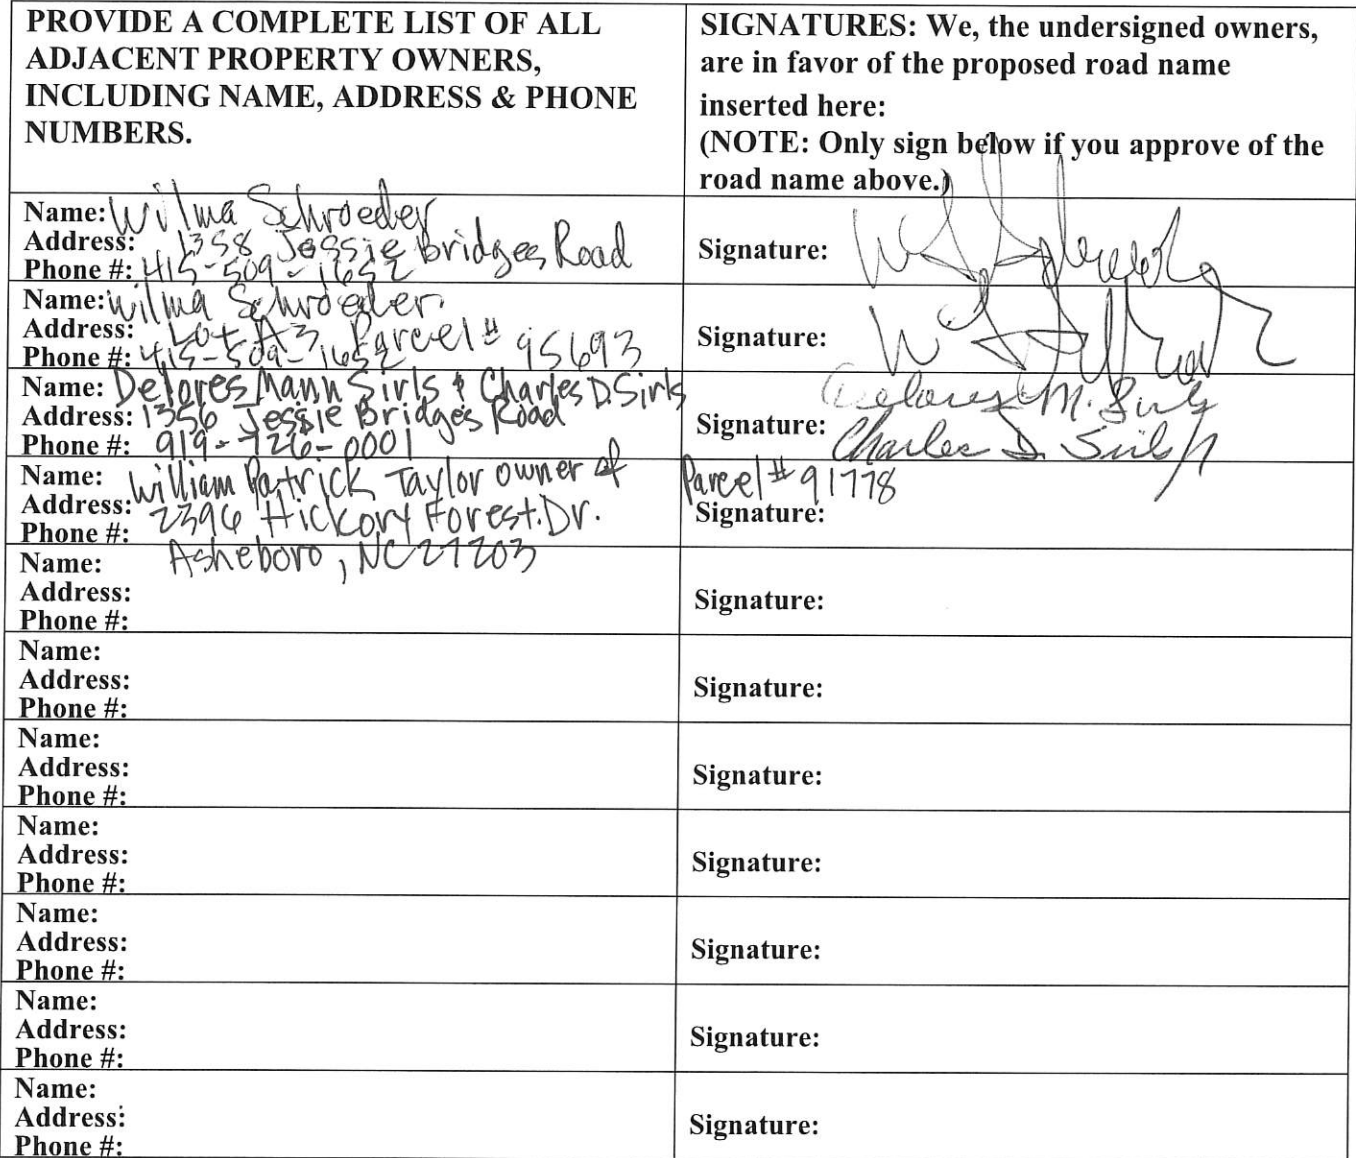 PROVIDE A COMPLETE LIST OF ALL
ADJACENT PROPERTY OWNERS,
INCLUDING NAME, ADDRESS & PHONE
NUMBERS.
SIGNATURES: We, the undersigned owners,
are in favor of the proposed road name
inserted here:
(NOTE: Only sign below if you approve of the
road name above.)
Name: Wilma Schroeder
Address: 1358 Jessie Bridges Road
Phone #: 415-509-1652
Signature:
Name: Wilma Schroeder
Address: Lot A3 Parcel # 95693
Phone #: 415-509-1652
Signature:
Name: Delores Mann Sirls & Charles D. Sirls
Address: 1356 Jessie Bridges Road
Phone #: 919-726-0001
Signature: Delores M. Sirls
Charles D. Sirls
Name: William Patrick Taylor owner of Parcel # 91778
Address: 2396 Hickory Forest Dr.
Phone #:
Signature:
Asheboro, NC 27203
Name:
Address:
Phone #:
Signature:
Name:
Address:
Phone #:
Signature:
Name:
Address:
Phone #:
Signature:
Name:
Address:
Phone #:
Signature:
Name:
Address:
Phone #:
Signature:
Name:
Address:
Phone #:
Signature:
Name:
Address:
Phone #:
Signature: